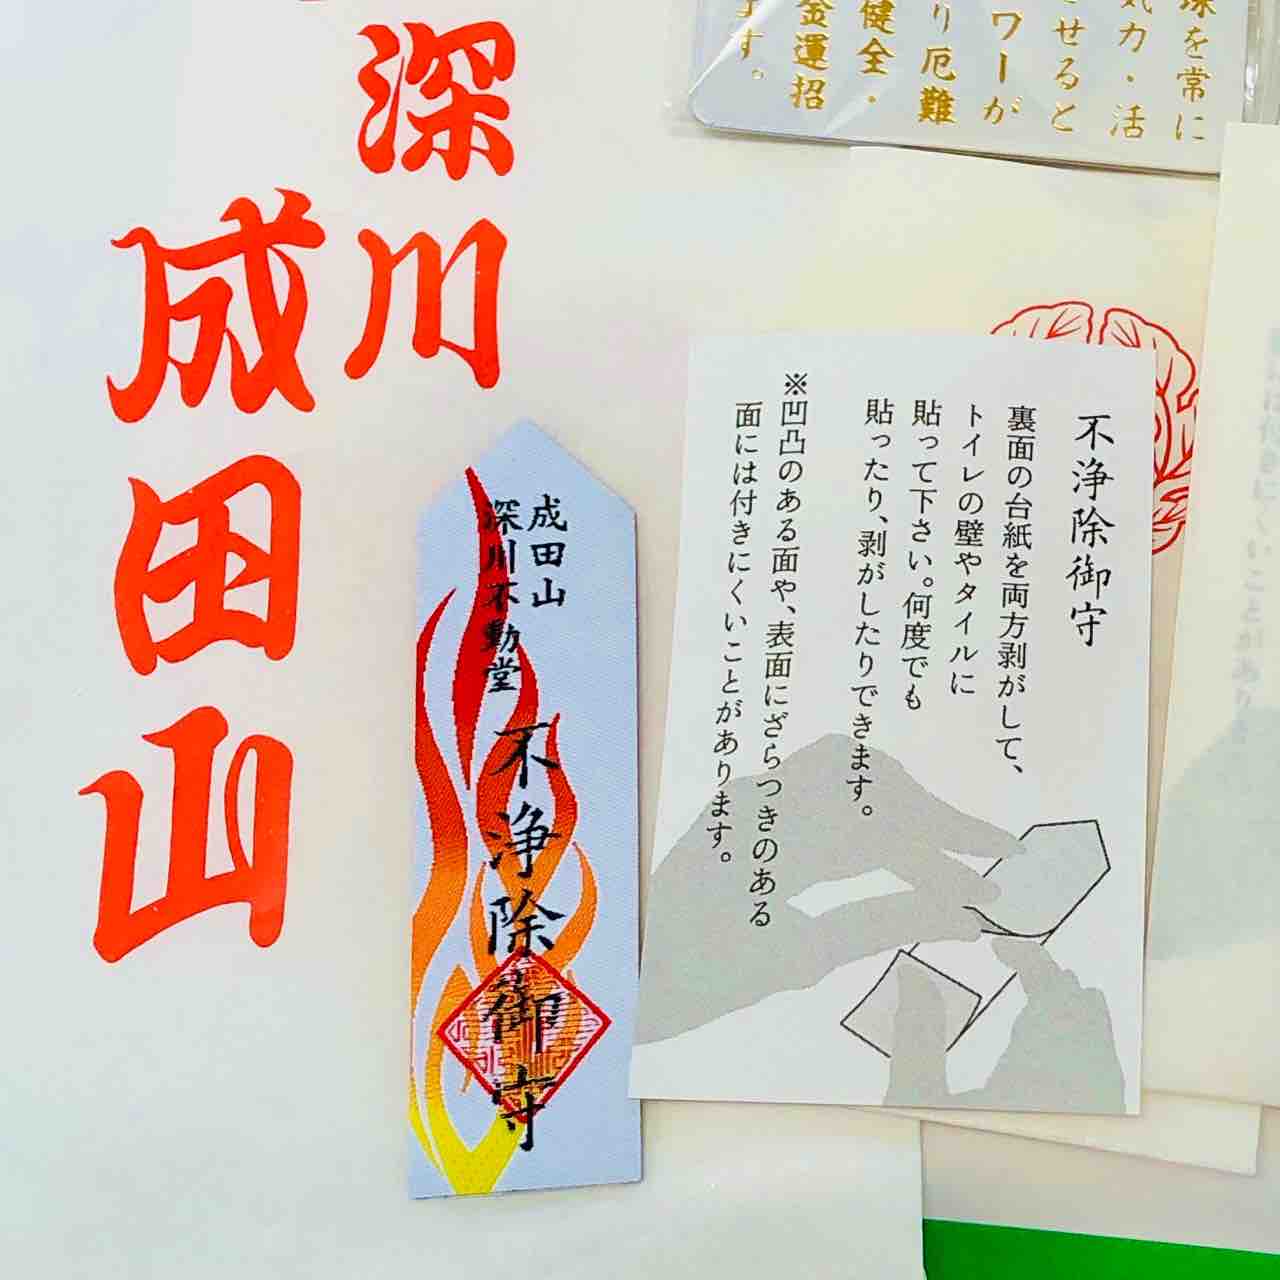 深川
成田山
成田山
深川不動堂
不浄除御守
不浄除御守
裏面の台紙を両方剥がして、
トイレの壁やタイルに
貼って下さい。何度でも
貼ったり、剥がしたりできます。
※凹凸のある面や、表面にざらつきのある
面には付きにくいことがあります。
珠を常に
気力・活
せると
ワーが
り厄難
健全・
金運招
ます。